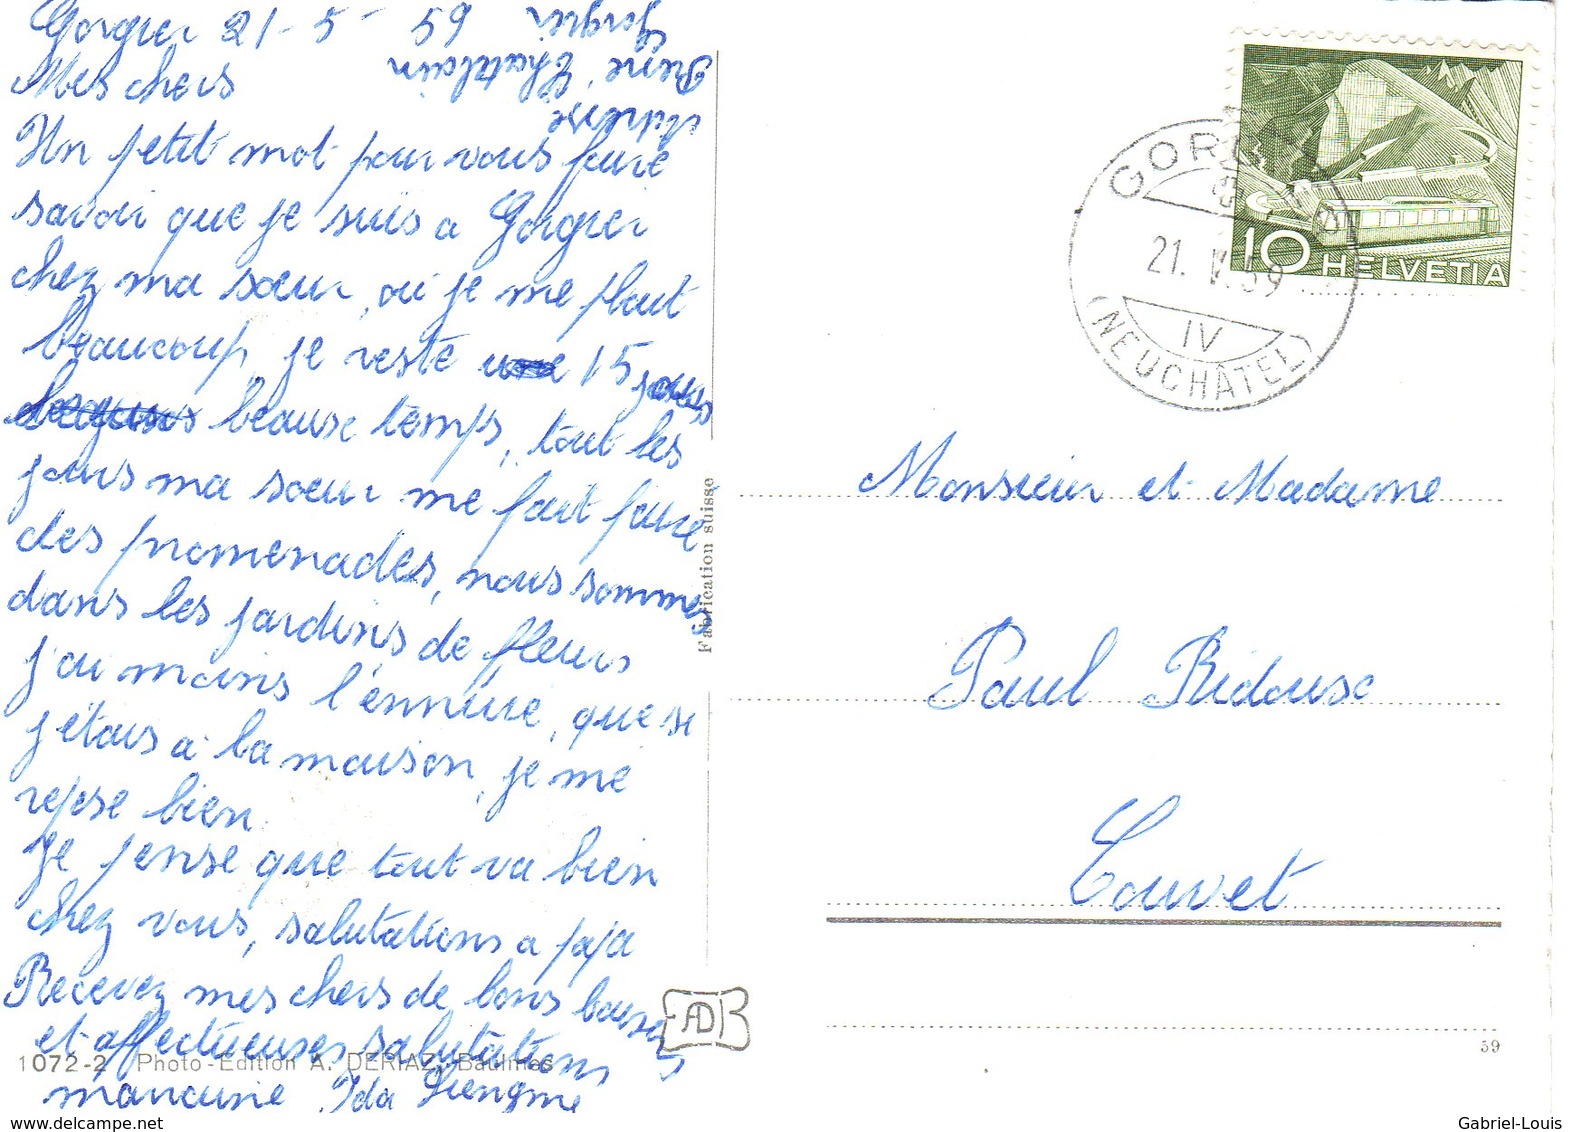 Gorgier 21-5-59
Mes chers
Un petit mot pour vous faire
savoir que je suis a Gorgier
chez ma sœur, où je me plait
beaucoup, je reste 15 jours
beause temps, tout les
jours ma soeur me fait faire
des promenades, nous sommes
dans les jardins de fleurs
j'ai moins l'ennuie, que si
j'étais a la maison, je me
repse bien.
Je pense que tout va bien
chez vous, salutations a papa
Recevez mes chers de bons baisers
et affectueuses salutations
marraine Ida
Adresse
Chatelain
Gorgier
GORGIER
21. V. 59
IV
(NEUCHÂTEL)
10 HELVETIA
Monsieur et Madame
Paul
Couvet
Fabrication suisse
AD
59
1072-2 Photo-Edition A. DERIAZ, Baulmes
www.delcampe.net
Gabriel-Louis